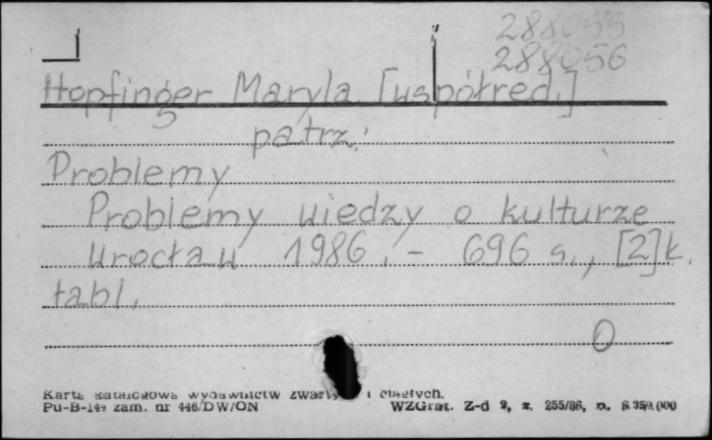 288055
288056
Hopfinger Maryla [współred.]
patrz:
Problemy
Problemy wiedzy o kulturze
Wrocław 1986. - 696 s., [2] k.
tabl.
O
Karta katalogowa wydawnictw zwartych i ciągłych.
Pu-B-144 zam. nr 446/DW/ON WZGraf. Z-d 2, z. 255/86, n.